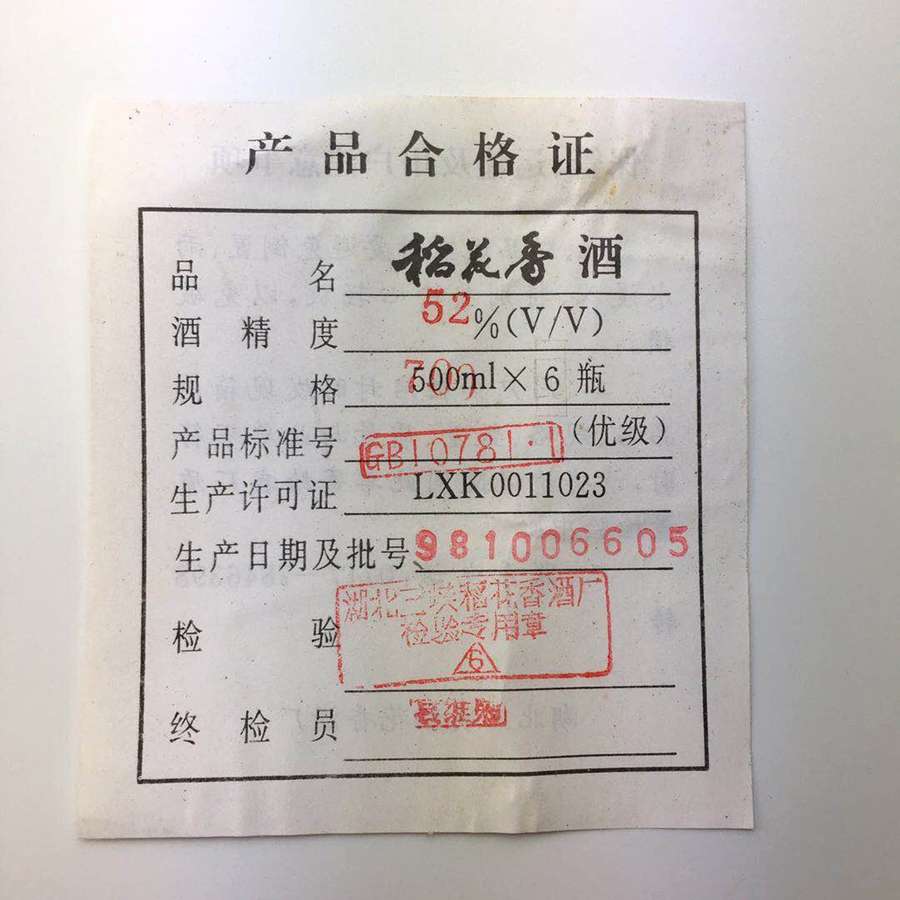 产品合格证
品名 稻花香酒
酒精度 52%(V/V)
规格 500ml×6瓶
产品标准号 GB10781·1 (优级)
生产许可证 LXK0011023
生产日期及批号 981006605
检验 湖北三峡稻花香酒厂
检验专用章
6
终检员